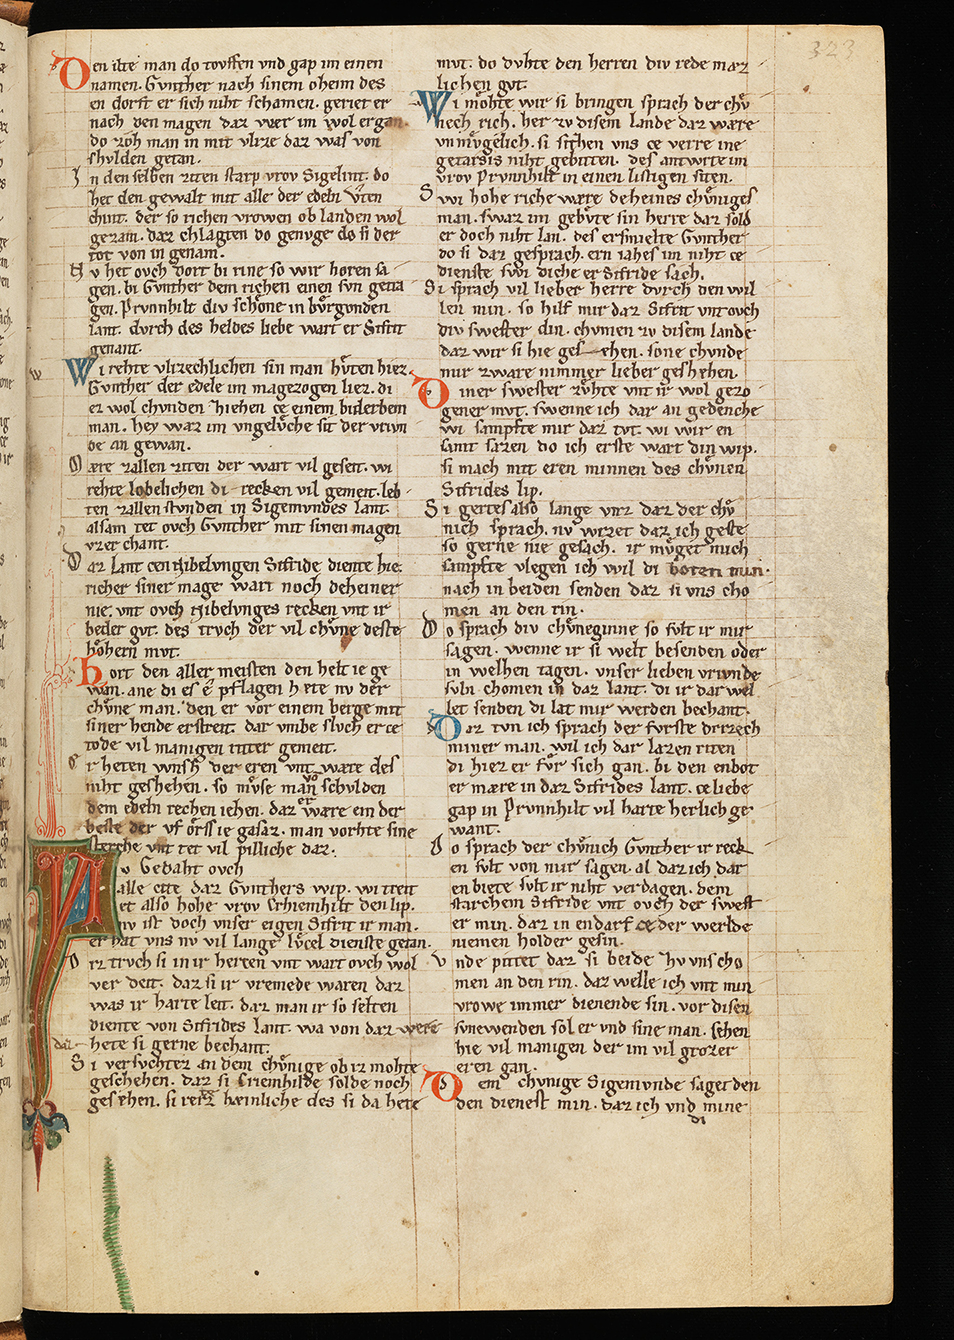 323
Den ilte man do tovffen vnd gap im einen
namen. Gvnther nach sinem oheim des
en dorft er sich niht schamen. geriet er
nach den magen daz wer im wol ergan.
do zoh man in mit vlize daz was von
shvlden getan.
In den selben ziten starp vrov Sigelint. do
het den gewalt mit alle der edeln Vͦten
chint. der so richen vrowen ob landen wol
gezam. daz chlagten do genvge do si der
tot von in genam.
Nv het ovch dort bi rine so wir horen sa
gen. bi Gvnther dem richen einen svn getra
gen. Prvnnhilt div schoͤne in bvͦrgonden
lant. dvrch des heldes liebe wart er Sifrit
genant.
Wi rehte vlizechlichen sin man hvͤten hiez.
Gvnther der edele im magezogen liez. di
ez wol chvnden ziehen ce einem biderbem
man. hey waz im vngelvͦche sit der vrivn
de an gewan.
Mære zallen ziten der wart vil geseit. wi
rehte lobelichen di recken vil gemeit. leb
ten zallen stvnden in Sigemvndes lant.
alsam tet ovch Gvnther mit sinen magen
vzer chant.
Daz lant cen Nibelvngen Sifride diente hie.
richer siner mage wart noch deheiner
nie. vnt ovch Nibelvnges recken vnt ir
beder gvt. des trvch der vil chvͤne deste
hoͤhern mvt.
Hort den aller meisten den helt ie ge
wan. ane di es e pflagen hete nv der
chvͤne man. den er vor einem berge mit
siner hende erstreit. dar vmbe slvch er ce
tode vil manigen ritter gemeit.
Er heten wnsch der eren vnt wære des
niht geshehen. so mvͤse man von schvlden
dem edeln rechen iehen. daz er wære ein der
beste der vf oͤrss ie gasaz. man vorhte sine
sterche vnt tet vil pilliche daz.
Nv Gedaht ovch
alle cite daz Gvnthers wip. wi treit
et also hohe vrov Chiemhilt den lip.
nv ist doch vnser eigen Sifrit ir man.
er hat vns nv vil lange lvͤcel dienste getan.
Diz trvch si in ir herzen vnt wart ovch wol
ver deit. daz si ir vremede waren daz
was ir harte leit. daz man ir so selten
diente von Sifrides lant. wa von daz were
daz hete si gerne bechant.
Si versvchtez an dem chvͤnige ob iz mohte
geschehen. daz si Criemhilde solde noch
gesehen. si reitz hæinliche des si da hete
mvt. do dvhte den herren div rede mæz
lichen gvt.
Wi moͤhte wir si bringen sprach der chvͤ
nech rich. her zv disem lande daz wære
vnmvͤgelich. si sitzhen vns ce verre ine
getarsis niht gebitten. des antwrte im
vrov Prvnnhilt in einen listigen siten.
Swi hohe riche wære deheines chvͤniges
man. swaz im gebvͤte sin herre daz sold
er doch niht lan. des ersmielte Gvnther
do si daz gesprach. ern iahes im niht ce
dienste swi diche er Sifride sach.
Si sprach vil lieber herre dvrch den wil
len min. so hilf mir daz Sifrit vnt ovch
div swester din. chvmen zv disem lande
daz wir si hie gesehen. sone chvnde
mir zware nimmer lieber geshehen.
Diner swester zvͤhte vnt ir wol gezo
gener mvt. swenne ich dar an gedenche
wi sampfte mir daz tvt. wi wir en
samt sazen do ich erste wart din wip.
si mach mit eren minnen des chvͤnen
Sifrides lip.
Si gertes also lange vnz daz der chvͤ
nich sprach. nv wizet daz ich geste
so gerne nie gesach. ir mvͤget mich
sampfte vlegen ich wil di boten min.
nach in beiden senden daz si vns cho
men an den rin.
Do sprach div chvͤneginne so svlt ir mir
sagen. wenne ir si welt besenden oder
in welhen tagen. vnser lieben vrivnde
svln chomen in daz lant. di ir dar wel
let senden di lat mir werden bechant.
Daz tvn ich sprach der fvrste drizech
miner man. wil ich dar lazen riten
di hiez er fvͤr sich gan. bi den enbot
er mære in daz Sifrides lant. ce liebe
gap in Prvnnhilt vil harte herlich ge
want.
Do sprach der chvͤnich Gvnther ir reck
en svlt von mir sagen. al daz ich dar
enbiete svlt ir niht verdagen. dem
starchem Sifride vnt ovch der swest
er min. daz in endarf ce der werlde
niemen holder gesin.
Vnde pittet daz si beide zv vns cho
men an den rin. daz welle ich vnt min
vrowe immer dienende sin. vor disen
svnewenden sol er vnd sine man. sehen
hie vil manigen der im vil grozer
eren gan.
Dem chvnige Sigemvnde saget den
den dienest min. daz ich vnd mine
di